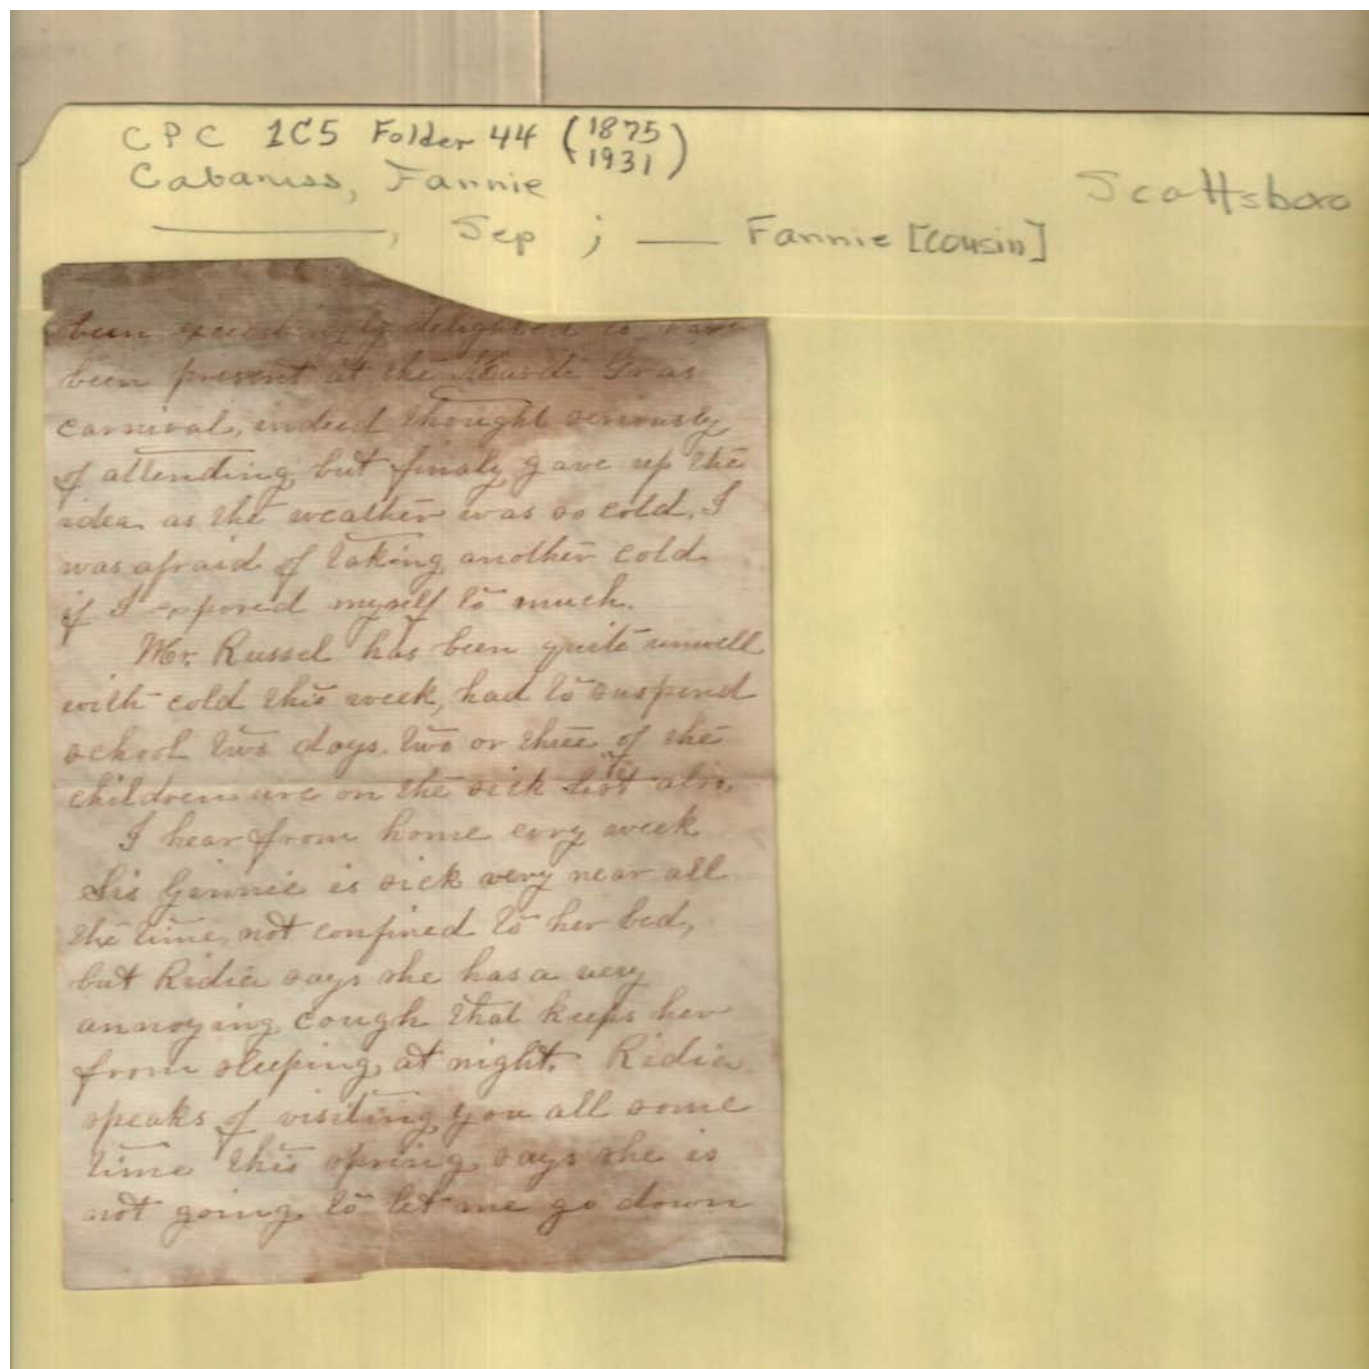 CPC 1C5 Folder 44 (1875
1931)
Cabaniss, Fannie
Scottsboro
———, Sep ; — Fannie [cousin]
been exceedingly delighted to have
been present at the Mardi Gras
carnival, indeed thought seriously
of attending but finaly gave up the
idea as the weather was so cold, I
was afraid of taking another cold
if I expored myself to much.
Mr. Russel has been quite unwell
with cold this week, had to suspend
school two days, two or three of the
children are on the sick list also.
I hear from home evry week
Sis Ginnie is sick very near all
the time, not confined to her bed,
but Ridia says she has a very
annoying cough that keeps her
from sleeping at night. Ridia
speaks of visiting you all some
time this spring, says she is
not going to let me go down